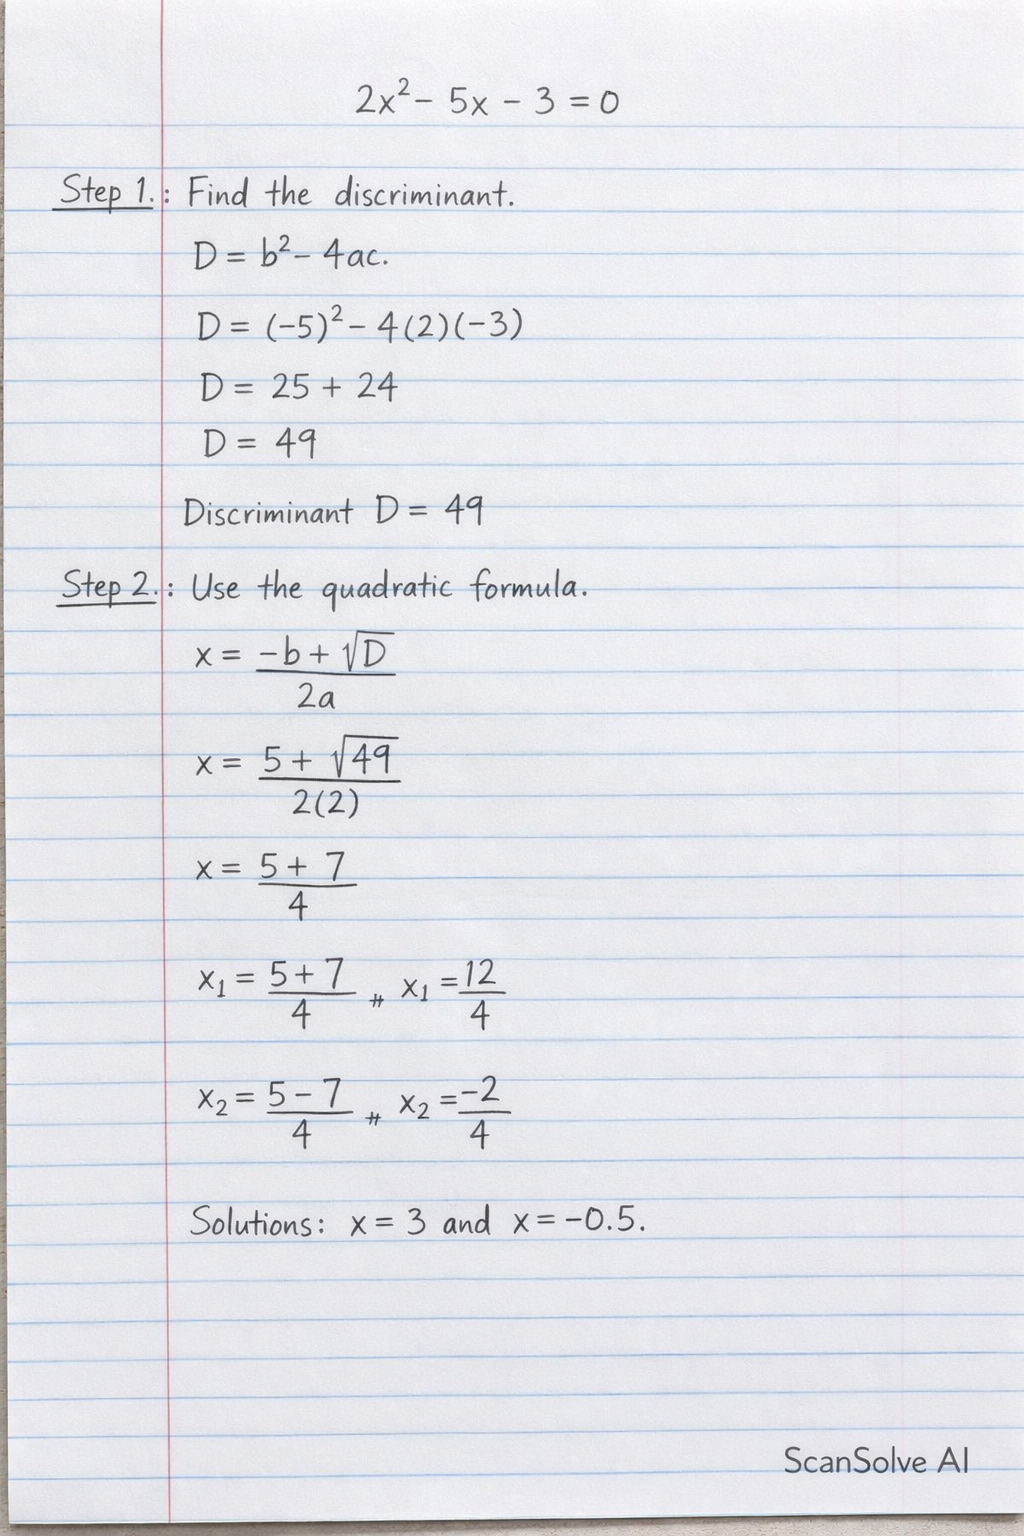 2x² - 5x - 3 = 0
Step 1.: Find the discriminant.
D = b² - 4ac.
D = (-5)² - 4(2)(-3)
D = 25 + 24
D = 49
Discriminant D = 49
Step 2.: Use the quadratic formula.
x = -b + √D
2a
x = 5 + √49
2(2)
x = 5 + 7
4
x₁ = 5 + 7 / 4 # x₁ = 12 / 4
x₂ = 5 - 7 / 4 # x₂ = -2 / 4
Solutions: x = 3 and x = -0.5.
ScanSolve AI